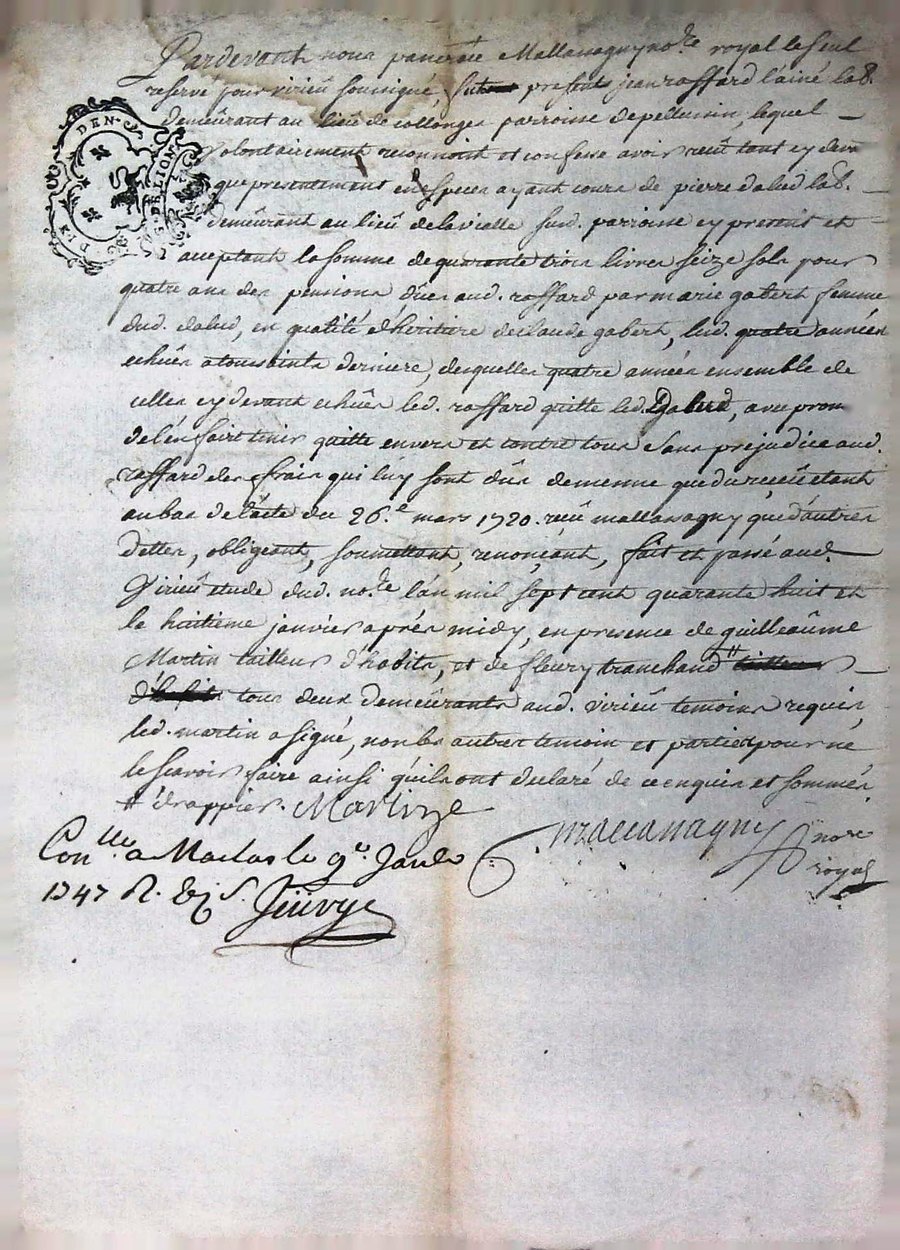 Pardevant nous Mallanagny no.re royal le seul
reservé pour virieû soussigné, present jean raffard l'ainé lab.
demeûrant au lieû de collonges parroisse de pellussin, lequel
volontairement reconnoit et confesse avoir reçû tant cy devt
que presentement en especes ayant cours de pierre dalud lab.
demeûrant au lieû de la vielle sud. parroisse cy present et
acceptant la somme de quarante trois livres seize sols pour
quatre ans des pensions dûes aud. raffard par marie gabert femme
dud. dalud, en qualité d'héritiere de claude gabert, lesd. quatre années
echûes a toussaints derniere, desquelles quatre années ensemble de
celles cy devant echûes led. raffard quitte led. , avec prom
de l'en faire tenir quitte envers et contre tous sans prejudice aud.
raffard des frais qui luy sont dûs de mesme que du reçû étant
au bas de l'acte du 26.e mars 1720. reçû mallanagny que d'autres
dettes, obligeant, soumettant, renonçant, fait et passé aud.
Virieû etude dud. no.re l'an mil sept cent quarante huit et
le huitieme janvier aprés midy, en presence de guilleaûme
Martin tailleur d'habits, et de fleury tranchand #
tous deux demeûrants aud. virieû temoins requis,
led. martin a signé, non les autres temoin et parties pour ne
le scavoir faire ainsi qu'ils ont declaré de ce enquis et sommés
# drappier. Martin
mallanagny nore
royal
Con.lle a Maclas le 9e Janv.
1747 R.
DEN.
DIX
G. DE LION